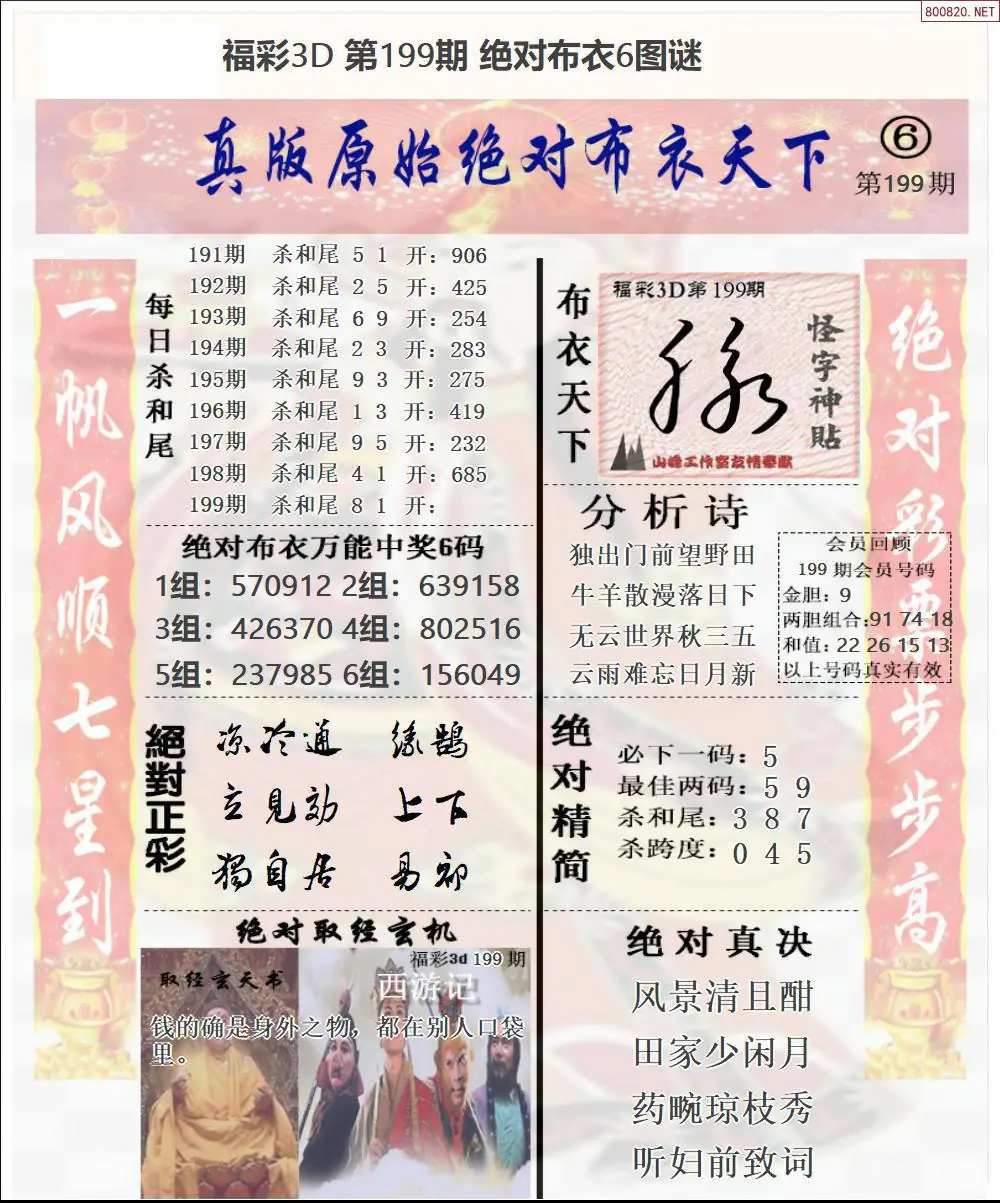 800820.NET
福彩3D 第199期 绝对布衣6图谜
真版原始绝对布衣天下
⑥
第199期
一帆风顺七星到
每日杀和尾
191期 杀和尾 5 1 开：906
192期 杀和尾 2 5 开：425
193期 杀和尾 6 9 开：254
194期 杀和尾 2 3 开：283
195期 杀和尾 9 3 开：275
196期 杀和尾 1 3 开：419
197期 杀和尾 9 5 开：232
198期 杀和尾 4 1 开：685
199期 杀和尾 8 1 开：
绝对布衣万能中奖6码
1组：570912 2组：639158
3组：426370 4组：802516
5组：237985 6组：156049
絕對正彩
凉冷通
立見効 上下
獨自居 易卻
绝对取经玄机
福彩3d 199 期
取经玄天书
西游记
钱的确是身外之物，都在别人口袋
里。
布衣天下
福彩3D第199期
怪字神貼
山峰工作室友情奉献
分析诗
独出门前望野田
牛羊散漫落日下
无云世界秋三五
云雨难忘日月新
会员回顾
199 期会员号码
金胆：9
两胆组合:91 74 18
和值：22 26 15 13
以上号码真实有效
绝对精简
必下一码：5
最佳两码：5 9
杀和尾：3 8 7
杀跨度：0 4 5
绝对真决
风景清且酣
田家少闲月
药畹琼枝秀
听妇前致词
绝对彩票步步高